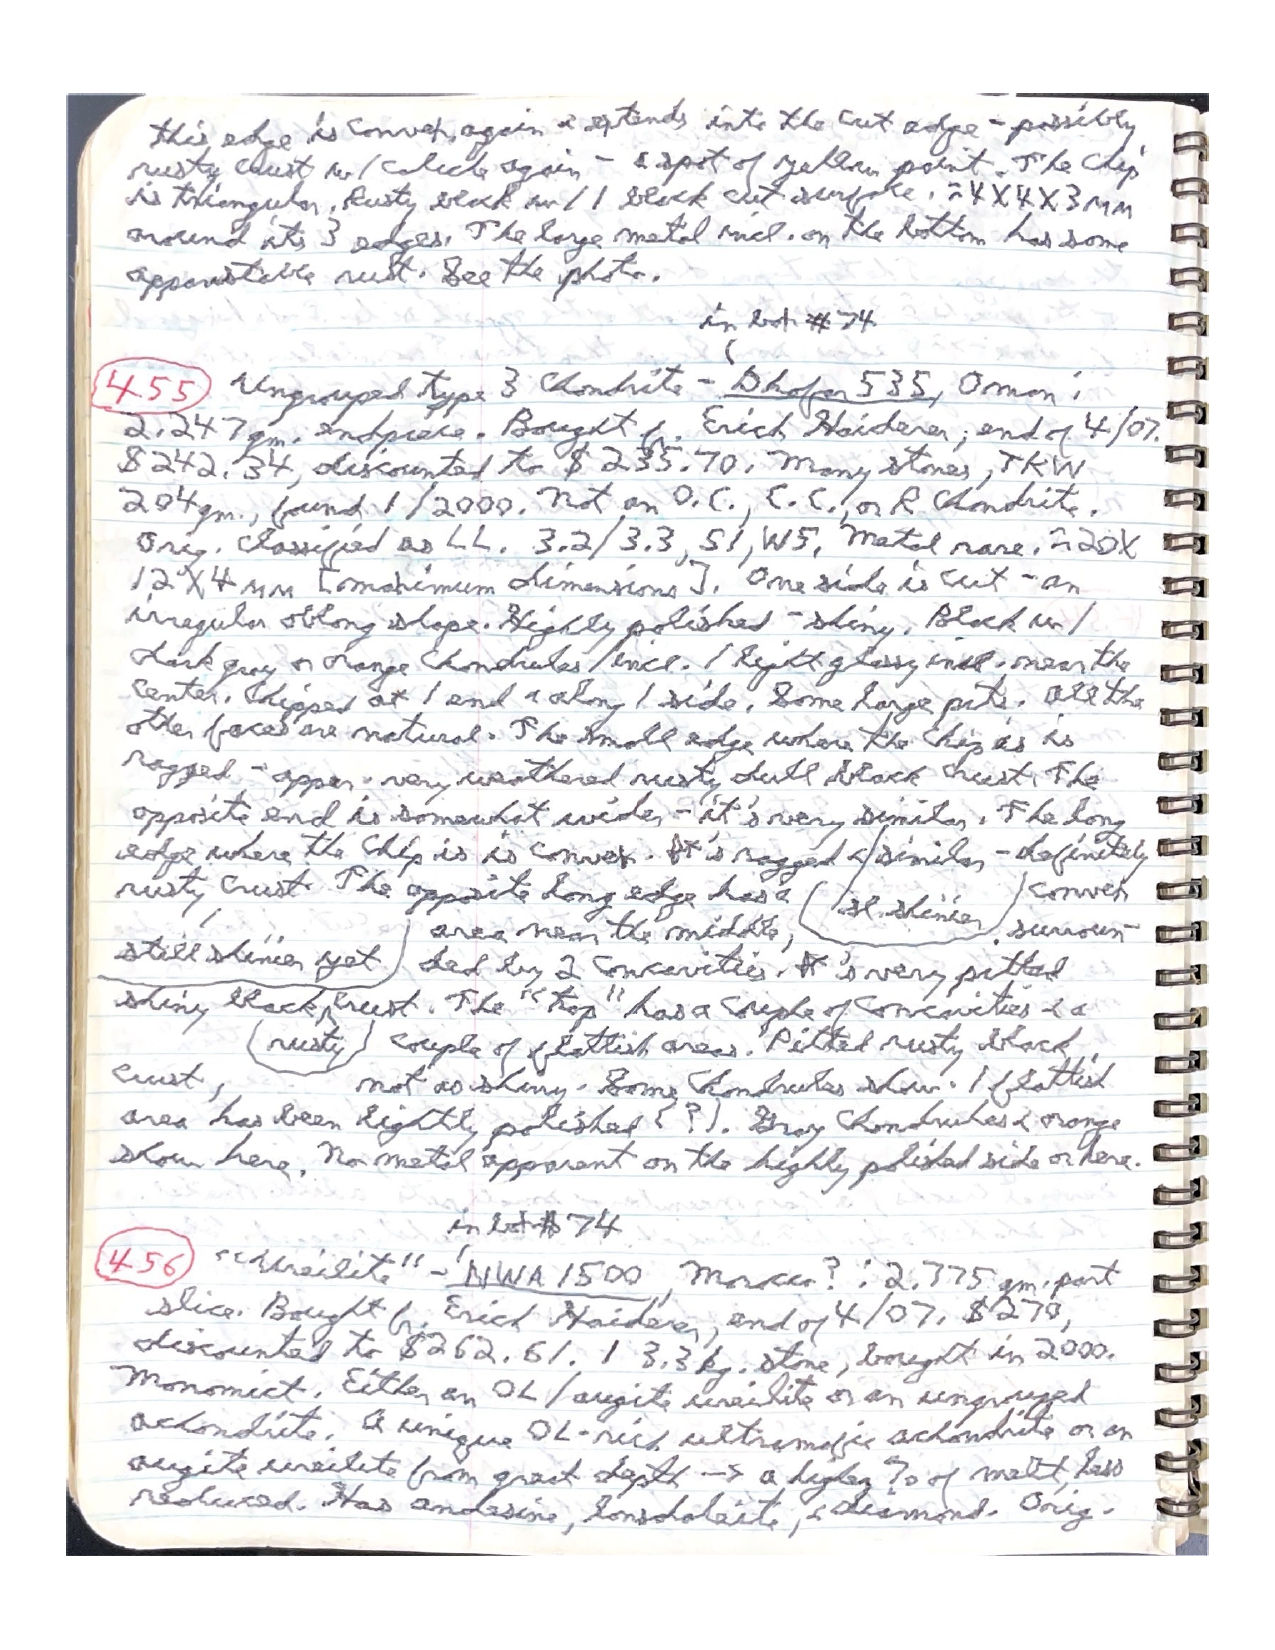 this edge is convex, again & extends into the cut edge - possibly
rusty crust w/ caliche again - a spot of yellow paint. The chip
is triangular. Rusty black w/ 1 black cut surface. ≈4X4X3mm
around its 3 edges. The large metal incl. on the bottom has some
rust. See the photo.
in lot #74
455 Ungrouped type 3 Chondrite - Dhofar 535, Oman:
2.247gm. endpiece. Bought fr. Erich Haiderer, end of 4/07.
$242.34, discounted to $235.70. Many stones, TKW
204gm., found 1/2000. Not an O.C., C.C., or R Chondrite.
Orig. classified as LL. 3.2/3.3, S1, W5. Metal rare. ≈20X
12X4mm [maximum dimensions]. One side is cut - an
irregular oblong shape. Highly polished - shiny. Black w/
dark gray or orange chondrules/incl. 1 light glassy incl. near the
center. Chipped at 1 end & along 1 side. Some large pits. All the
other faces are natural. The small edge where the chip is is
ragged - appar. very weathered rusty dull black crust. The
opposite end is somewhat wider - it's very similar. The long
edge where the chip is is convex. It's ragged & similar - definitely
rusty crust. The opposite long edge has a (sl. shinier) convex
area near the middle, surroun-
still shinier yet) ded by 2 concavities. It's very pitted
shiny black crust. The "top" has a couple of concavities & a
(rusty) couple of flattish areas. Pitted rusty black
crust, not as shiny. Some chondrules show. 1 flattish
area has been lightly polished (?). Gray chondrules & orange
show here. No metal apparent on the highly polished side or here.
in lot #74
456 "Ureilite" - NWA 1500, Morocco?: 2.775gm. part
slice. Bought fr. Erich Haiderer, end of 4/07. $270,
discounted to $262.61. 1 3.3kg. stone, bought in 2000.
Monomict. Either an OL/augite ureilite or an ungrouped
achondrite. A unique OL-rich ultramafic achondrite or an
augite ureilite from great depth -> a higher % of melt, less
reduced. Has andesine, lonsdaleite, & diamond. Orig.